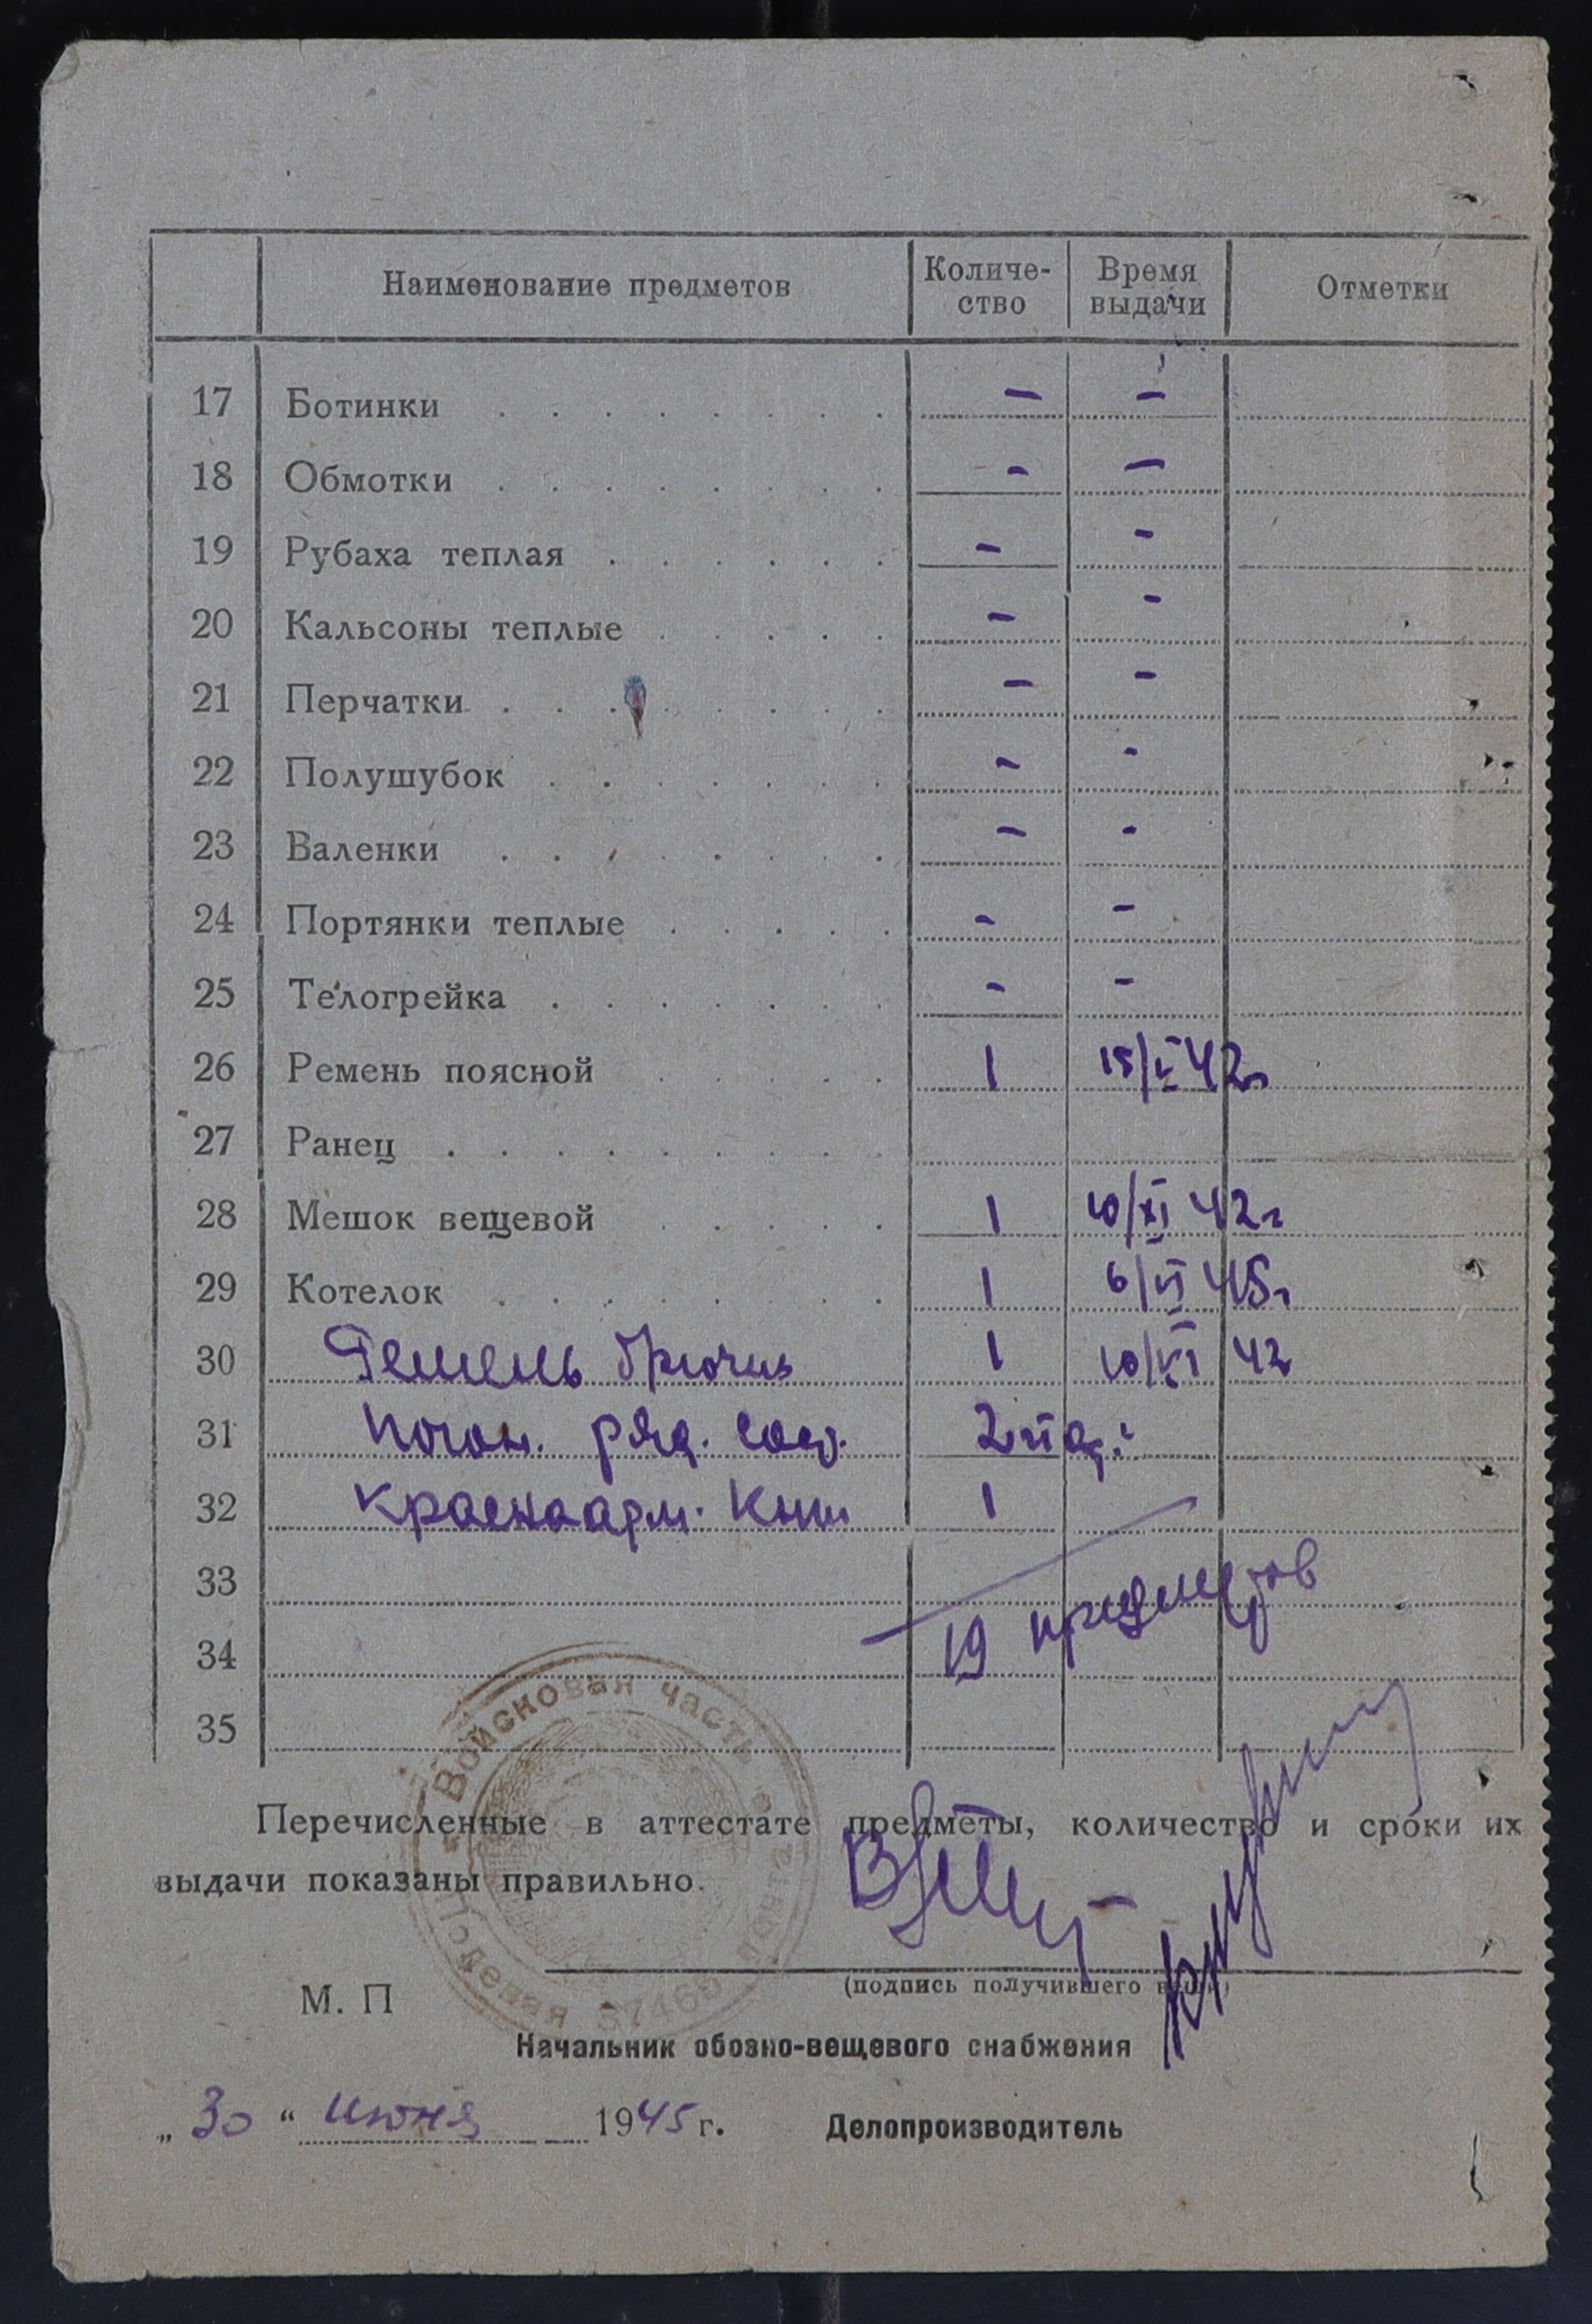 Наименование предметов Количе- Время Отметки
ство выдачи
17 Ботинки . . . . . . . . – –
18 Обмотки . . . . . . . . – –
19 Рубаха теплая . . . . . . – –
20 Кальсоны теплые . . . . . – –
21 Перчатки . . . . . . . . – –
22 Полушубок . . . . . . . – –
23 Валенки . . . . . . . . – –
24 Портянки теплые . . . . . – –
25 Телогрейка . . . . . . . – –
26 Ремень поясной . . . . . 1 42г
27 Ранец . . . . . . . . .
28 Мешок вещевой . . . . . 1 10/XI 42г
29 Котелок . . . . . . . . 1 6/VI 45г
30 Ремень брючн 1 42
31 Погон. ряд. сост. 2 пар.
32 Красноарм. Книж 1
33
19 предметов
34
35
Войсковая часть
Полевая почта 57466
Перечисленные в аттестате предметы, количество и сроки их
выдачи показаны правильно.
(подпись получившего вещи)
М. П
Начальник обозно-вещевого снабжения
„ 30 “ июня 1945 г. Делопроизводитель